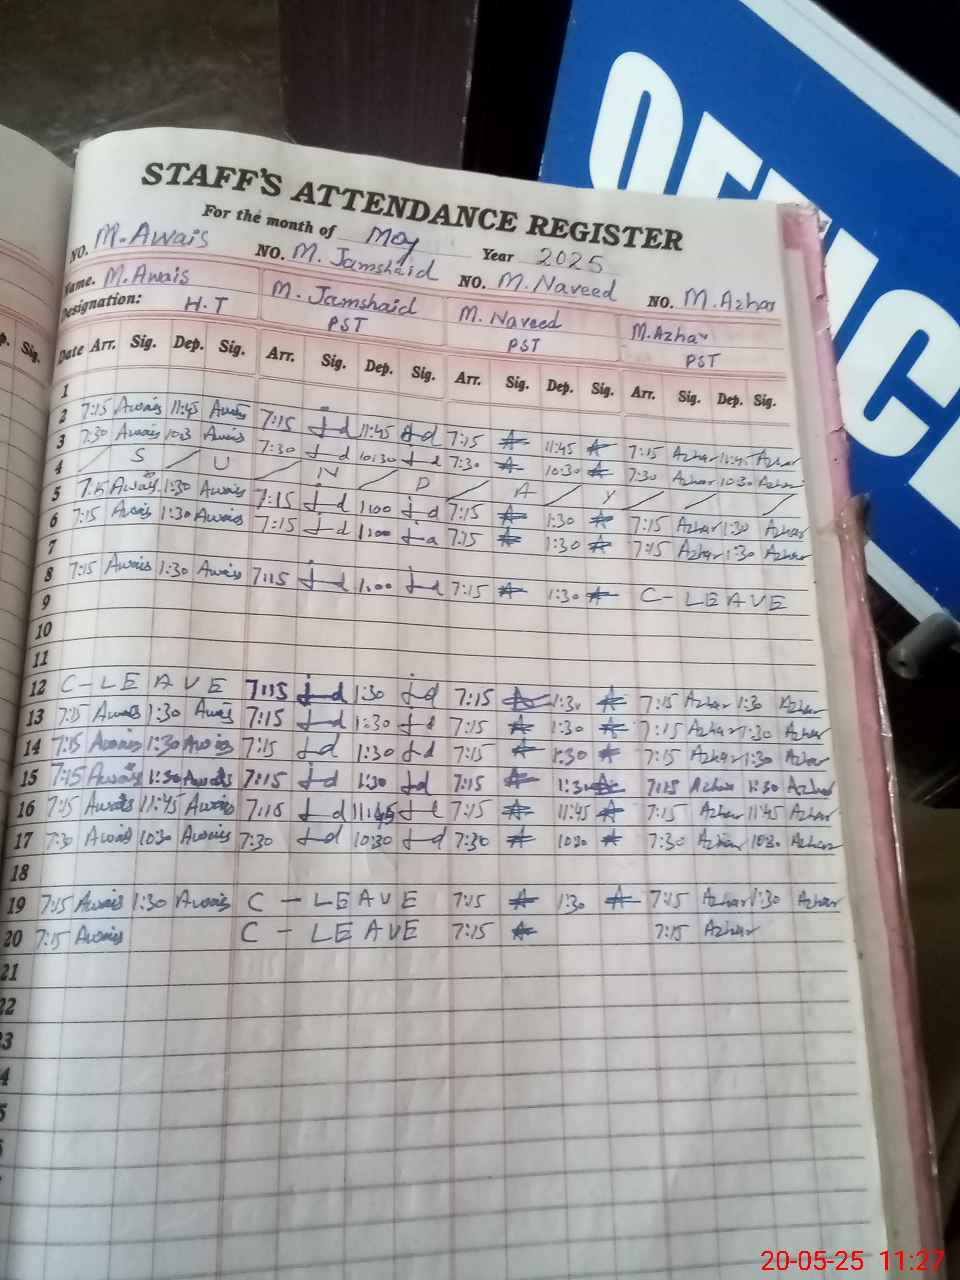 OFFICE
STAFF'S ATTENDANCE REGISTER
For the month of May Year 2025
NO. M.Awais NO. M. Jamshaid NO. M.Naveed NO. M.Azhar
Name. M.Awais M. Jamshaid M. Naveed M.Azhar
Designation: H.T PST PST PST
Sig. Date Arr. Sig. Dep. Sig. Arr. Sig. Dep. Sig. Arr. Sig. Dep. Sig. Arr. Sig. Dep. Sig.
1
2 7:15 Awais 11:45 Awais 7:15 J-d 11:45 J-d 7:15 11:45 7:15 Azhar 11:45 Azhar
3 7:30 Awais 1030 Awais 7:30 J-d 10:30 J-d 7:30 10:30 7:30 Azhar 10:30 Azhar
4 S U N D A Y
5 7:15 Awais 1:30 Awais 7:15 J-d 1:00 J-d 7:15 1:30 7:15 Azhar 1:30 Azhar
6 7:15 Awais 1:30 Awais 7:15 J-d 1:00 J-d 7:15 1:30 7:15 Azhar 1:30 Azhar
7
8 7:15 Awais 1:30 Awais 7:15 J-d 1:00 J-d 7:15 1:30 C-LEAVE
9
10
11
12 C-LEAVE 7:15 J-d 1:30 J-d 7:15 1:30 7:15 Azhar 1:30 Azhar
13 7:15 Awais 1:30 Awais 7:15 J-d 1:30 J-d 7:15 1:30 7:15 Azhar 1:30 Azhar
14 7:15 Awais 1:30 Awais 7:15 J-d 1:30 J-d 7:15 1:30 7:15 Azhar 1:30 Azhar
15 7:15 Awais 1:30 Awais 7:15 J-d 1:30 J-d 7:15 1:30 7:15 Azhar 1:30 Azhar
16 7:15 Awais 11:45 Awais 7:15 J-d 11:45 J-d 7:15 11:45 7:15 Azhar 11:45 Azhar
17 7:30 Awais 10:30 Awais 7:30 J-d 10:30 J-d 7:30 1030 7:30 Azhar 1030 Azhar
18
19 7:15 Awais 1:30 Awais C - LEAVE 7:15 1:30 7:15 Azhar 1:30 Azhar
20 7:15 Awais C - LEAVE 7:15 7:15 Azhar
21
22
3
4
5
20-05-25 11:27